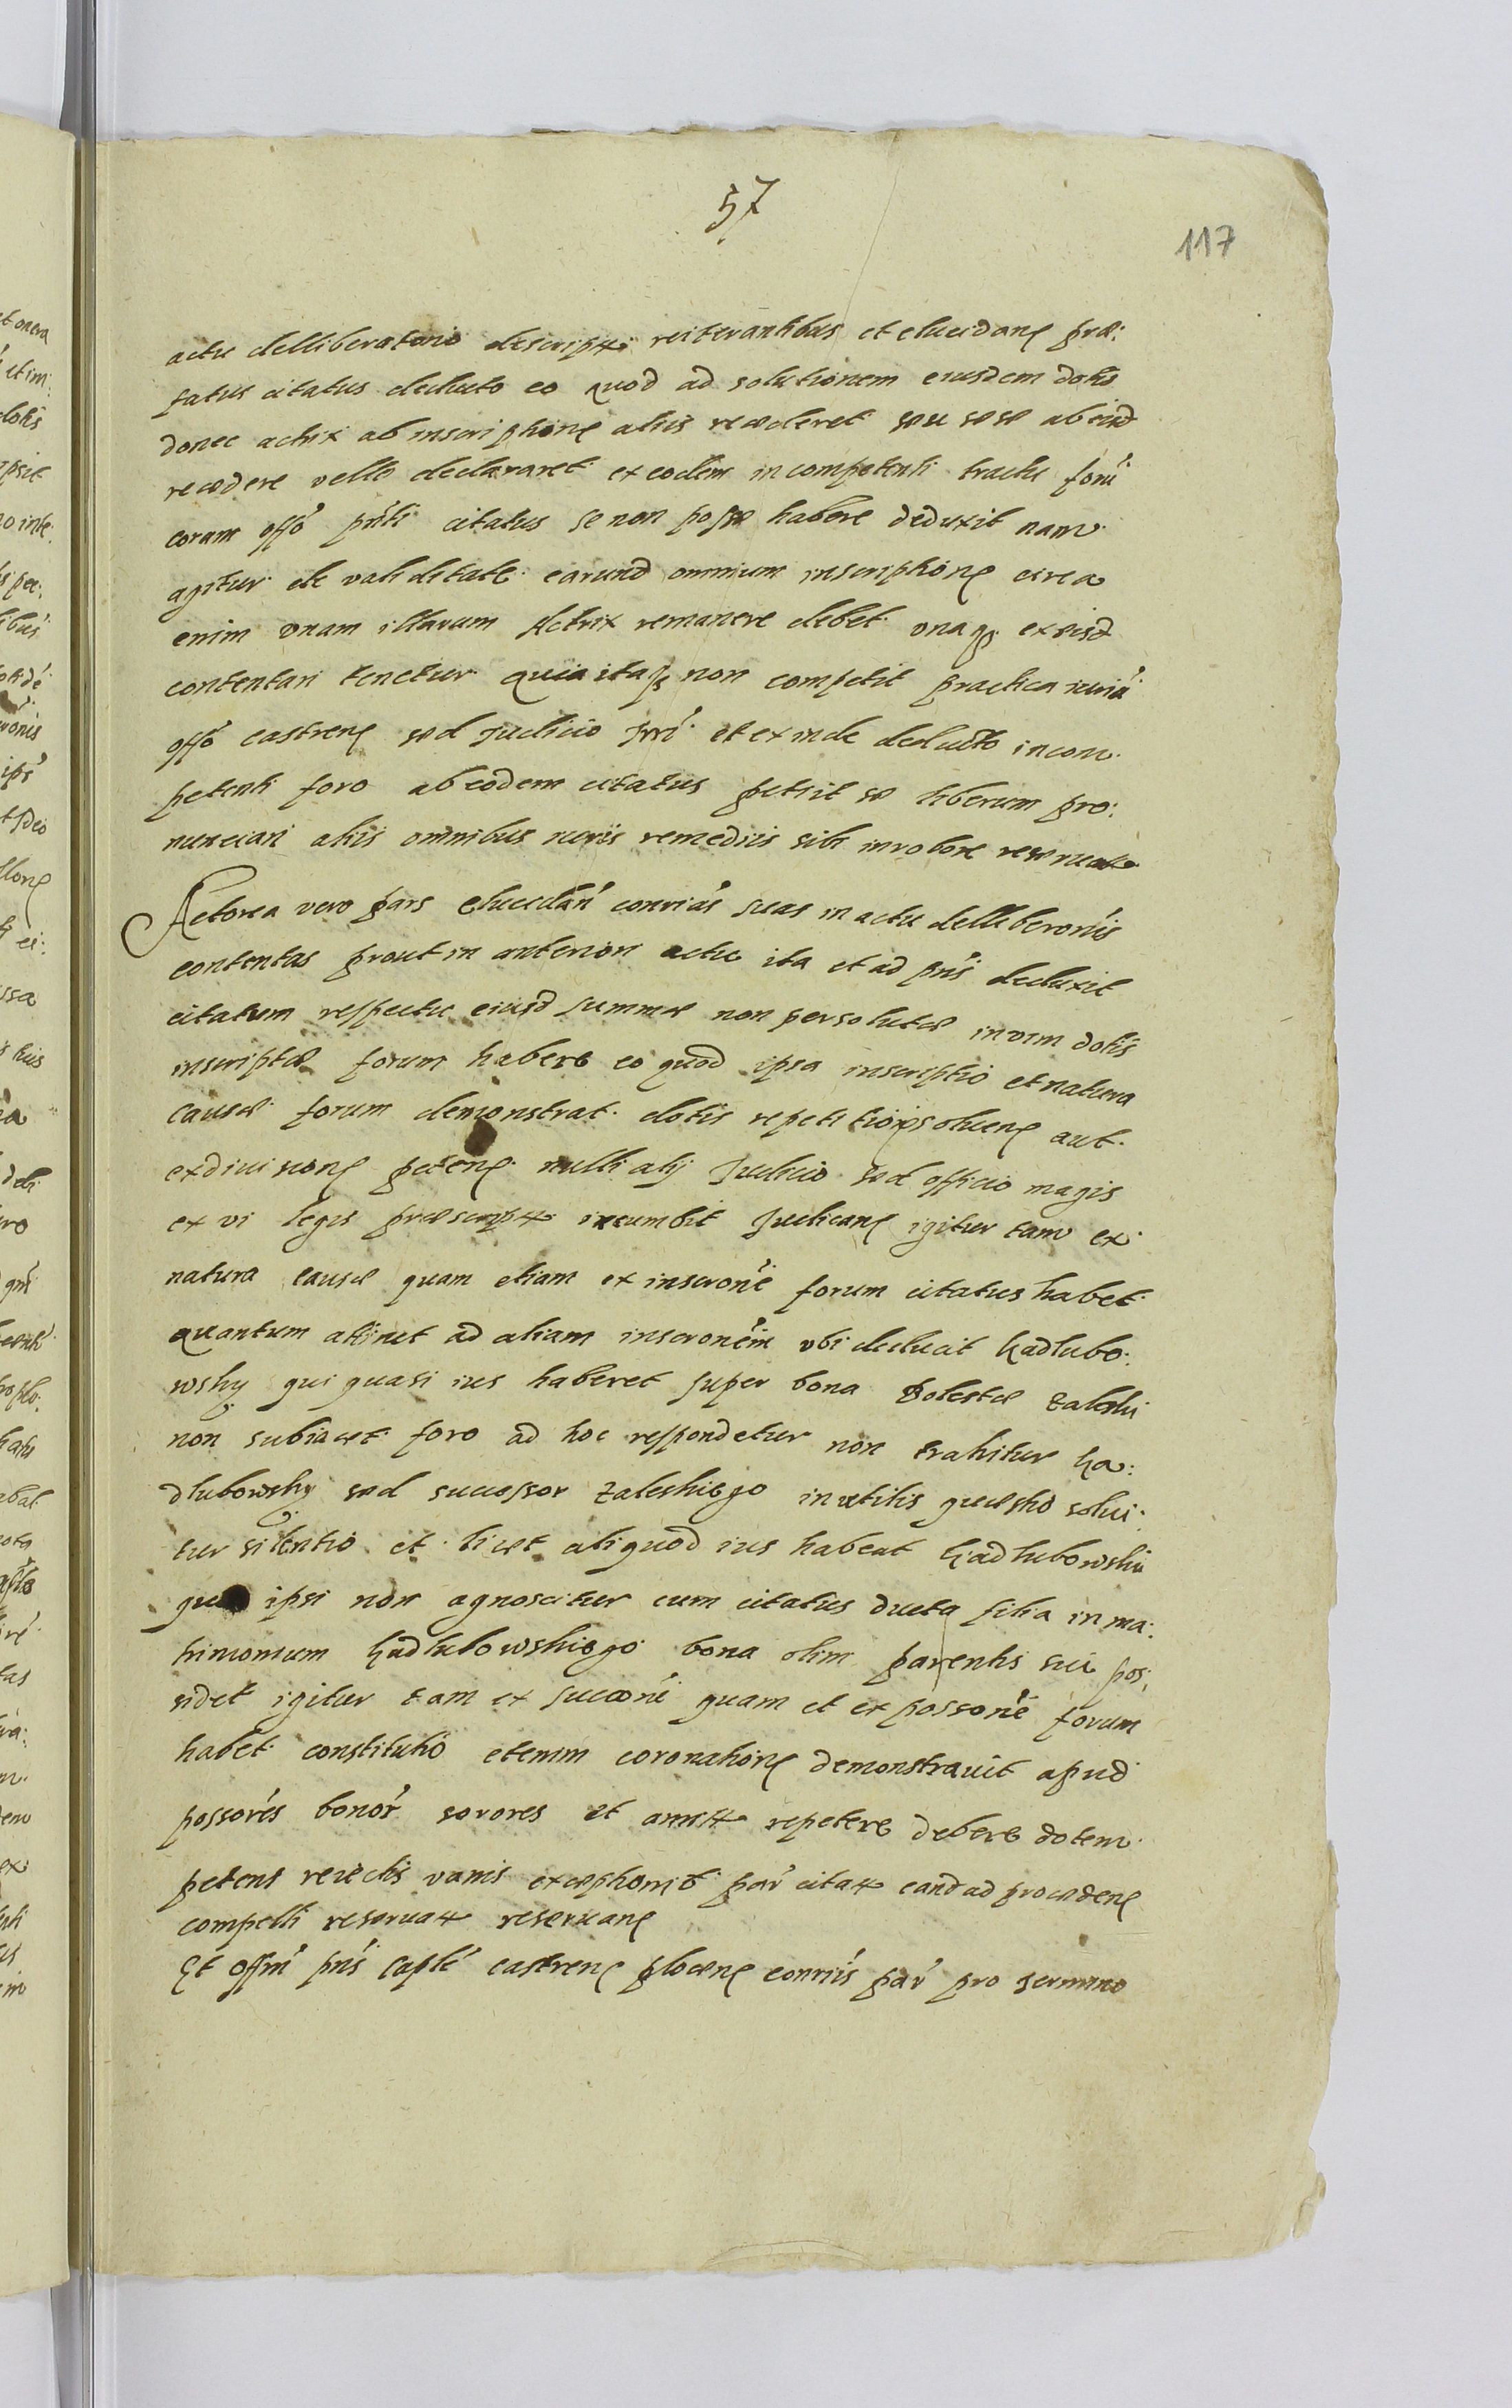 57
117
actu delliberatorio descriptis reiterantibus et elucidan prae:
fatus citatus deducto eo quod ad solutionem eiusdem dotis
donec actrix ab inscriptione aliis recederet seu sese ab eisd
recedere velle declararet ex eodem incompetenti tractu fori
coram offo pnti citatus se non posse habere deduxit nam
agitur de validitate earund omnium inscription circa
enim unam illarum Actrix remanere debet unaqz ex eisd
contentari tenetur quia itaqz non competit practica iuria
offo castren sed Judicio trri et exinde deducto incom
petenti foro ab eodem citatus petiit se liberum pro:
nunciari aliis omnibus iuris remediis sibi in robore reservatis
Actorea vero pars elucidan convias suas in actu delliberonis
contentas prout in anteriori actu ita et ad pns deduxit
citatum respectu eiusd summae non persolutae in vim dotis
inscriptae forum habere eo quod ipsa inscriptio et natura
causae forum demonstrat dotis repetition solven aut
ex division peten nulli alij Judicio sed officio magis
ex vi legis praescriptae incumbit Judican igitur tam ex
natura causae quam etiam ex inscrone forum citatus habet
quantum attinet ad aliam inscronem ubi deducit Kadlubo:
wsky qui quasi ius haberet super bona Bolestae Zaleski
non subiacet foro ad hoc respondetur non trahitur Ka:
dlubowsky sed successor Zaleskiego inutilis quaestio solvi:
tur silentio et licet aliquod ius habeat Kadlubowski
ipsi non agnoscitur cum citatus ducta filia in ma:
trimonium Kadlubowskiego bona olim parentis sui pos:
sidet igitur tam ex succone quam et ex possone forum
habet constitutio etenim coronation demonstravit apud
possores bonor sorores et amitas repetere debere dotem
petens reiectis vanis exceptionib par citatae eand ad proceden
compelli reservatis reservan
Et offm pns Caple castren plocen convis par pro termino